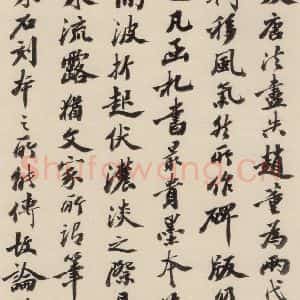 唐法盡失趙董為兩代
移風氣然所作碑版
凡函札書最貴墨本
間波折起伏濃淡之際
流露猶文家所謂筆
石刻本之所能傳故論
Shufawang.CN